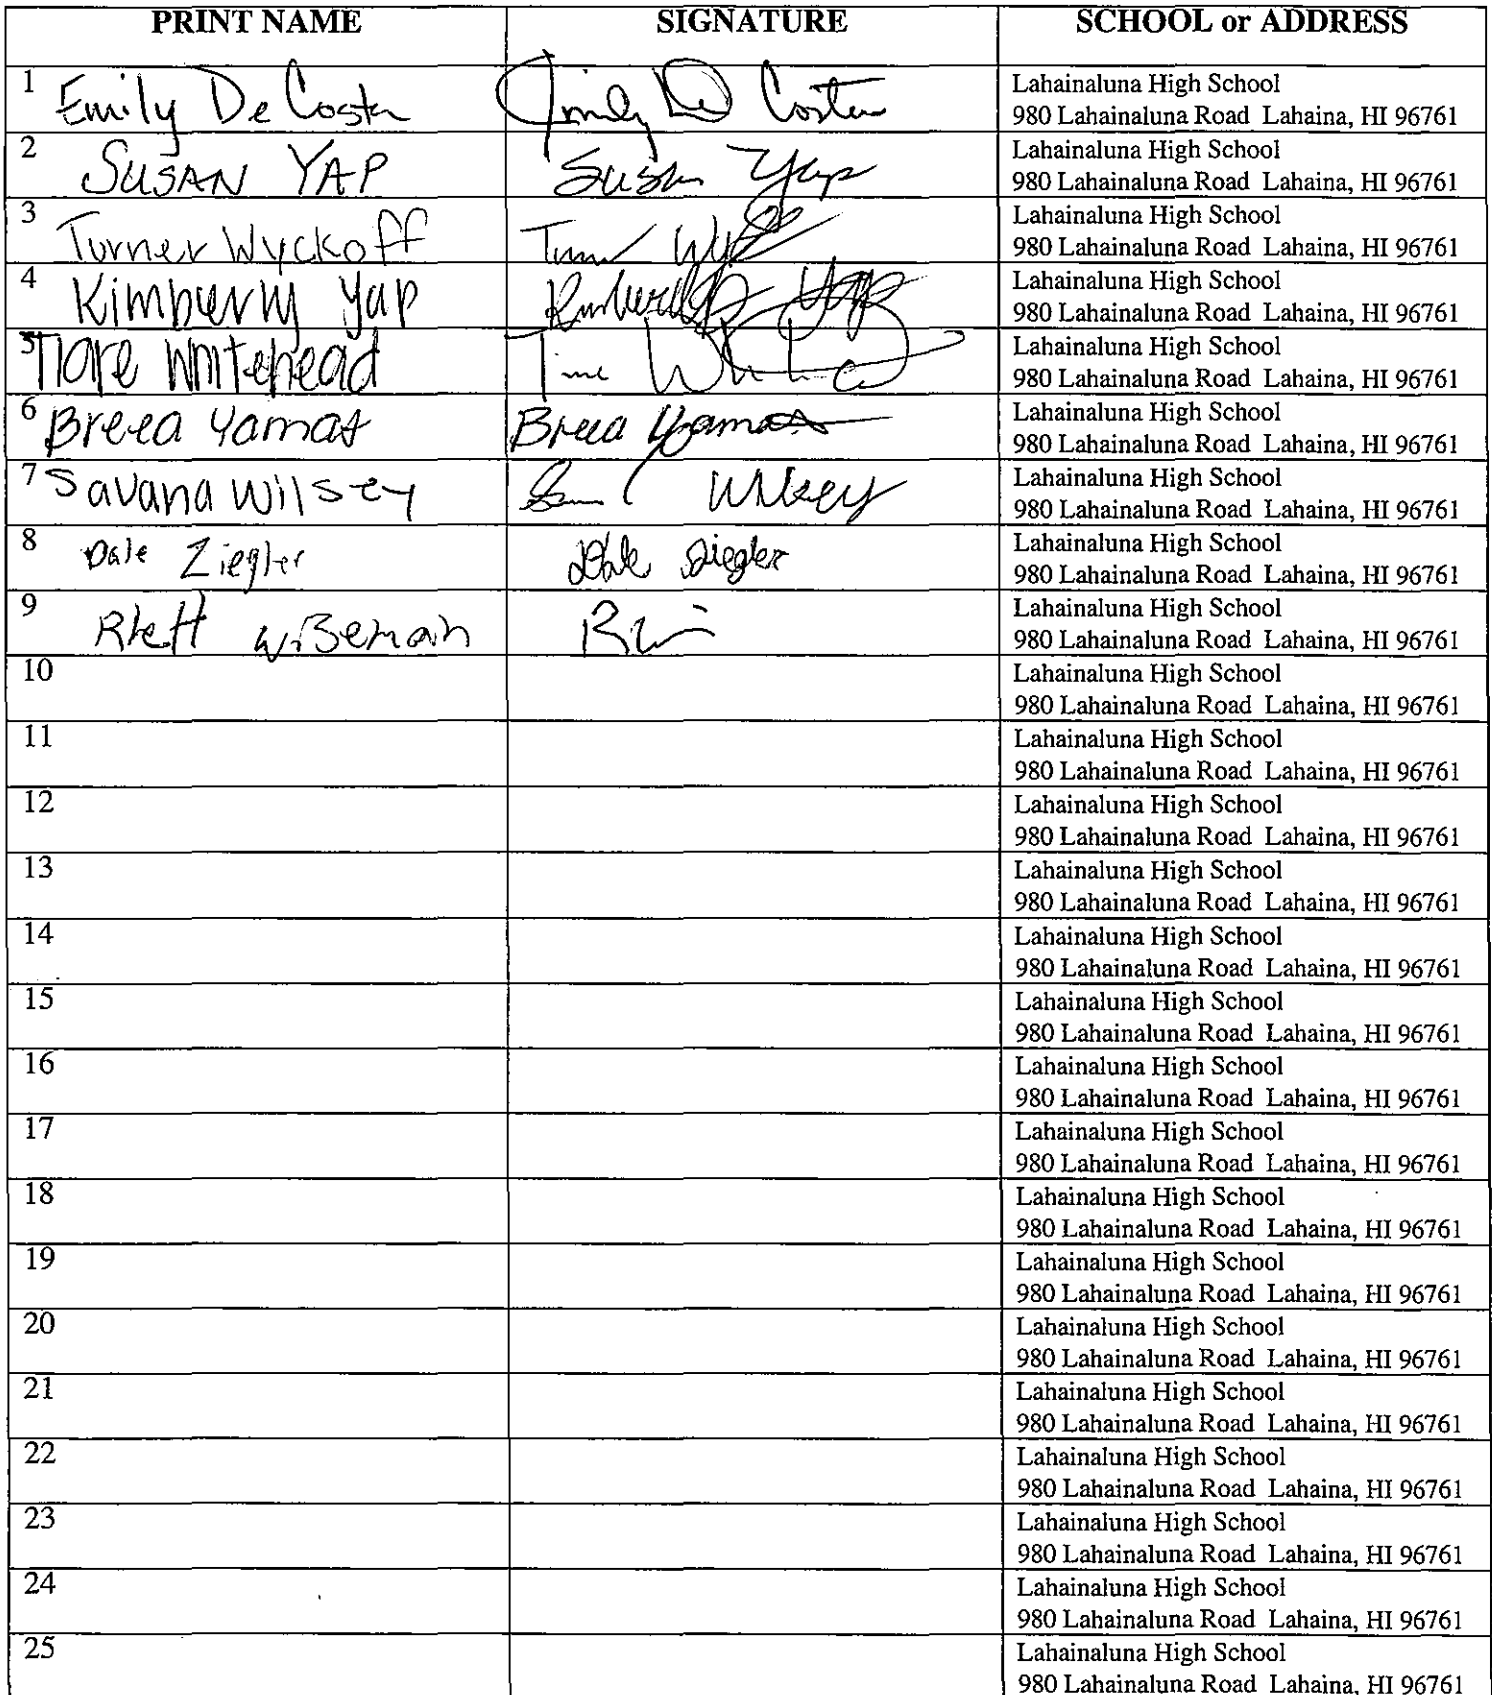 PRINT NAME SIGNATURE SCHOOL or ADDRESS
1 Emily De Costa Emily De Costa Lahainaluna High School
980 Lahainaluna Road Lahaina, HI 96761
2 SUSAN YAP Susan Yap Lahainaluna High School
980 Lahainaluna Road Lahaina, HI 96761
3 Turner Wyckoff Lahainaluna High School
980 Lahainaluna Road Lahaina, HI 96761
4 Kimberly Yap Kimberly Yap Lahainaluna High School
980 Lahainaluna Road Lahaina, HI 96761
5 Tiare Whitehead Lahainaluna High School
980 Lahainaluna Road Lahaina, HI 96761
6 Breea Yamat Breea Yamat Lahainaluna High School
980 Lahainaluna Road Lahaina, HI 96761
7 Savana Wilsey Wilsey Lahainaluna High School
980 Lahainaluna Road Lahaina, HI 96761
8 Dale Ziegler Dale Ziegler Lahainaluna High School
980 Lahainaluna Road Lahaina, HI 96761
9 Rhett wiseman Lahainaluna High School
980 Lahainaluna Road Lahaina, HI 96761
10 Lahainaluna High School
980 Lahainaluna Road Lahaina, HI 96761
11 Lahainaluna High School
980 Lahainaluna Road Lahaina, HI 96761
12 Lahainaluna High School
980 Lahainaluna Road Lahaina, HI 96761
13 Lahainaluna High School
980 Lahainaluna Road Lahaina, HI 96761
14 Lahainaluna High School
980 Lahainaluna Road Lahaina, HI 96761
15 Lahainaluna High School
980 Lahainaluna Road Lahaina, HI 96761
16 Lahainaluna High School
980 Lahainaluna Road Lahaina, HI 96761
17 Lahainaluna High School
980 Lahainaluna Road Lahaina, HI 96761
18 Lahainaluna High School
980 Lahainaluna Road Lahaina, HI 96761
19 Lahainaluna High School
980 Lahainaluna Road Lahaina, HI 96761
20 Lahainaluna High School
980 Lahainaluna Road Lahaina, HI 96761
21 Lahainaluna High School
980 Lahainaluna Road Lahaina, HI 96761
22 Lahainaluna High School
980 Lahainaluna Road Lahaina, HI 96761
23 Lahainaluna High School
980 Lahainaluna Road Lahaina, HI 96761
24 Lahainaluna High School
980 Lahainaluna Road Lahaina, HI 96761
25 Lahainaluna High School
980 Lahainaluna Road Lahaina, HI 96761